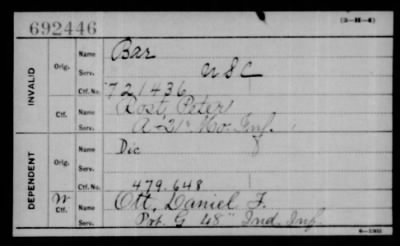 692446
(3-H-4)
INVALID
Orig. Name Bar
Serv. USC
Ctf. No. 721436
Ctf. Name Rost, Peter
Serv. A-21" Mo. Inf.
DEPENDENT
Orig. Name Dic
Serv.
Ctf. No. 479.648
W Ctf. Name Ott, Daniel F.
Serv. Pvt. G 48" Ind. Inf.